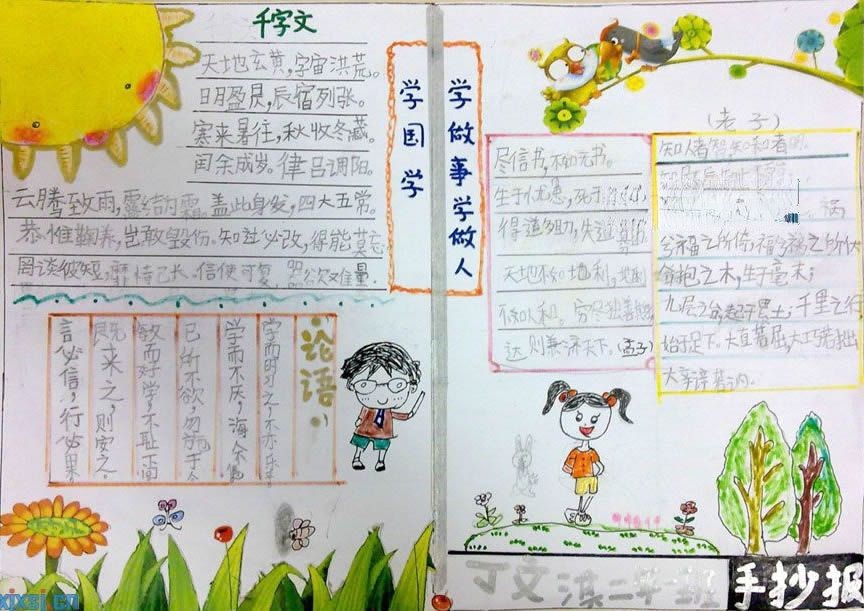 千字文
天地玄黄,宇宙洪荒。
日月盈昃,辰宿列张。
寒来暑往,秋收冬藏。
闰余成岁。律吕调阳。
云腾致雨,露结为霜。盖此身发,四大五常。
恭惟鞠养,岂敢毁伤。知过必改,得能莫忘
罔谈彼短,靡恃己长。信使可复,器欲难量
学国学
学做事学做人
论语:
学而时习之,不亦乐
学而不厌,诲人不倦
己所不欲,勿施于人
敏而好学,不耻下问
既来之,则安之。
言必信,行必果
尽信书,不如无书。
生于忧患,死于
得道多助,失道
天地不如地利,地利
不如人和。穷尽独善其身
达则兼济天下。(孟子)
(老子)
知人者智,知和者明。
祸
兮福之所倚,福兮祸之所伏
合抱之木,生于毫末;
九层之台,起于垒土;千里之行
始于足下。大直若屈,大巧若拙
大辛若
丁文淇二年一班
手抄报
xixsi.cn